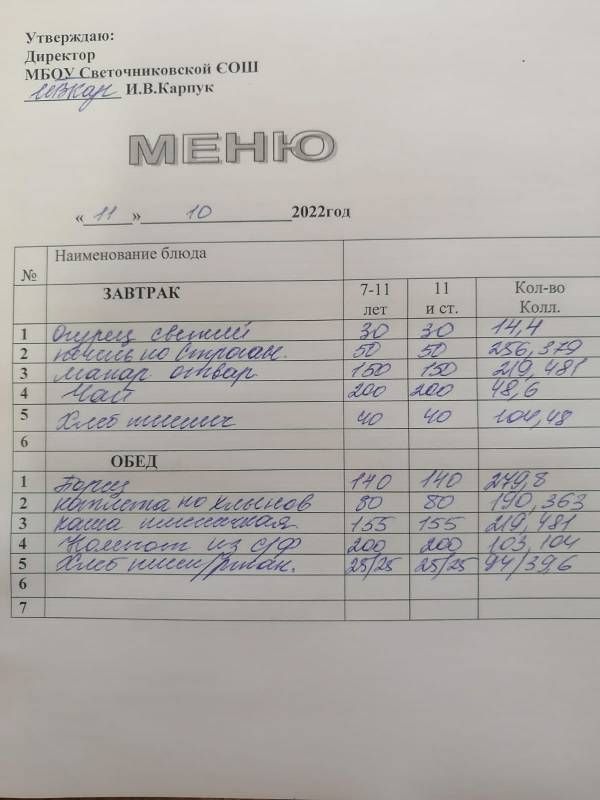 Утверждаю:
Директор
МБОУ Светочниковской ЄОШ
И.В.Карпук
МЕНЮ
« 11 » 10 2022год
№ Наименование блюда
ЗАВТРАК 7-11 лет 11 и ст. Кол-во Колл.
1 Огурец свежий 30 30 14,4
2 печень по Строган. 50 50 256,379
3 Макар. отвар 150 150 219,481
4 Чай 200 200 48,6
5 Хлеб пшенич 40 40 104,48
6
ОБЕД
1 Борщ 140 140 279,8
2 котлета по 80 80 190,363
3 каша 155 155 219,481
4 Компот из с/ф 200 200 103,104
5 Хлеб пшен/ржан. 25/25 25/25 94/39,6
6
7